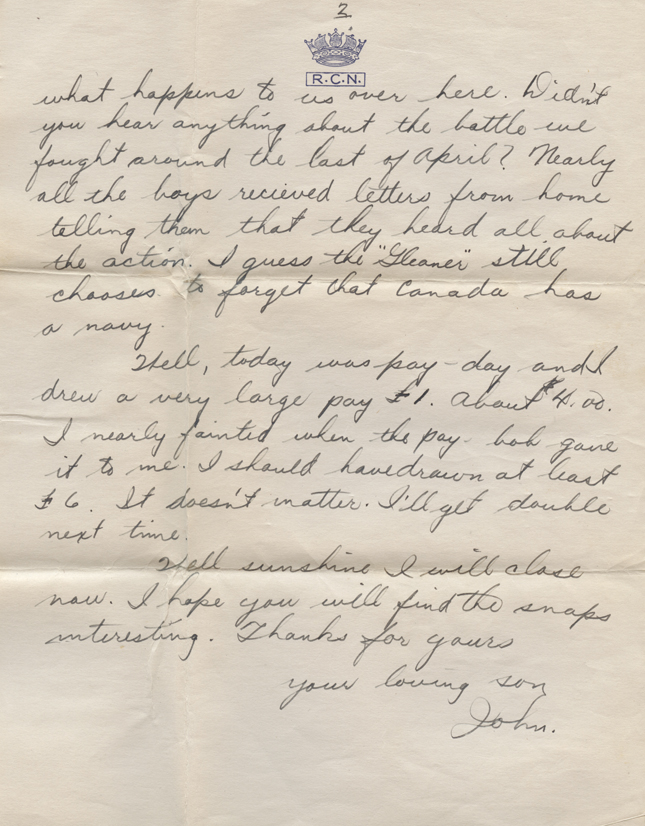 2
R.C.N.
what happens to us over here. Didn't
you hear anything about the battle we
fought around the last of April? Nearly
all the boys recieved letters from home
telling them that they heard all about
the action. I guess the "Gleaner" still
chooses to forget that Canada has
a navy.
Well, today was pay-day and I
drew a very large pay £1. About $4.00.
I nearly fainted when the pay-bob gave
it to me. I should have drawn at least
£6. It doesn't matter. I'll get double
next time.
Well sunshine I will close
now. I hope you will find the snaps
interesting. Thanks for yours
your loving son
John.